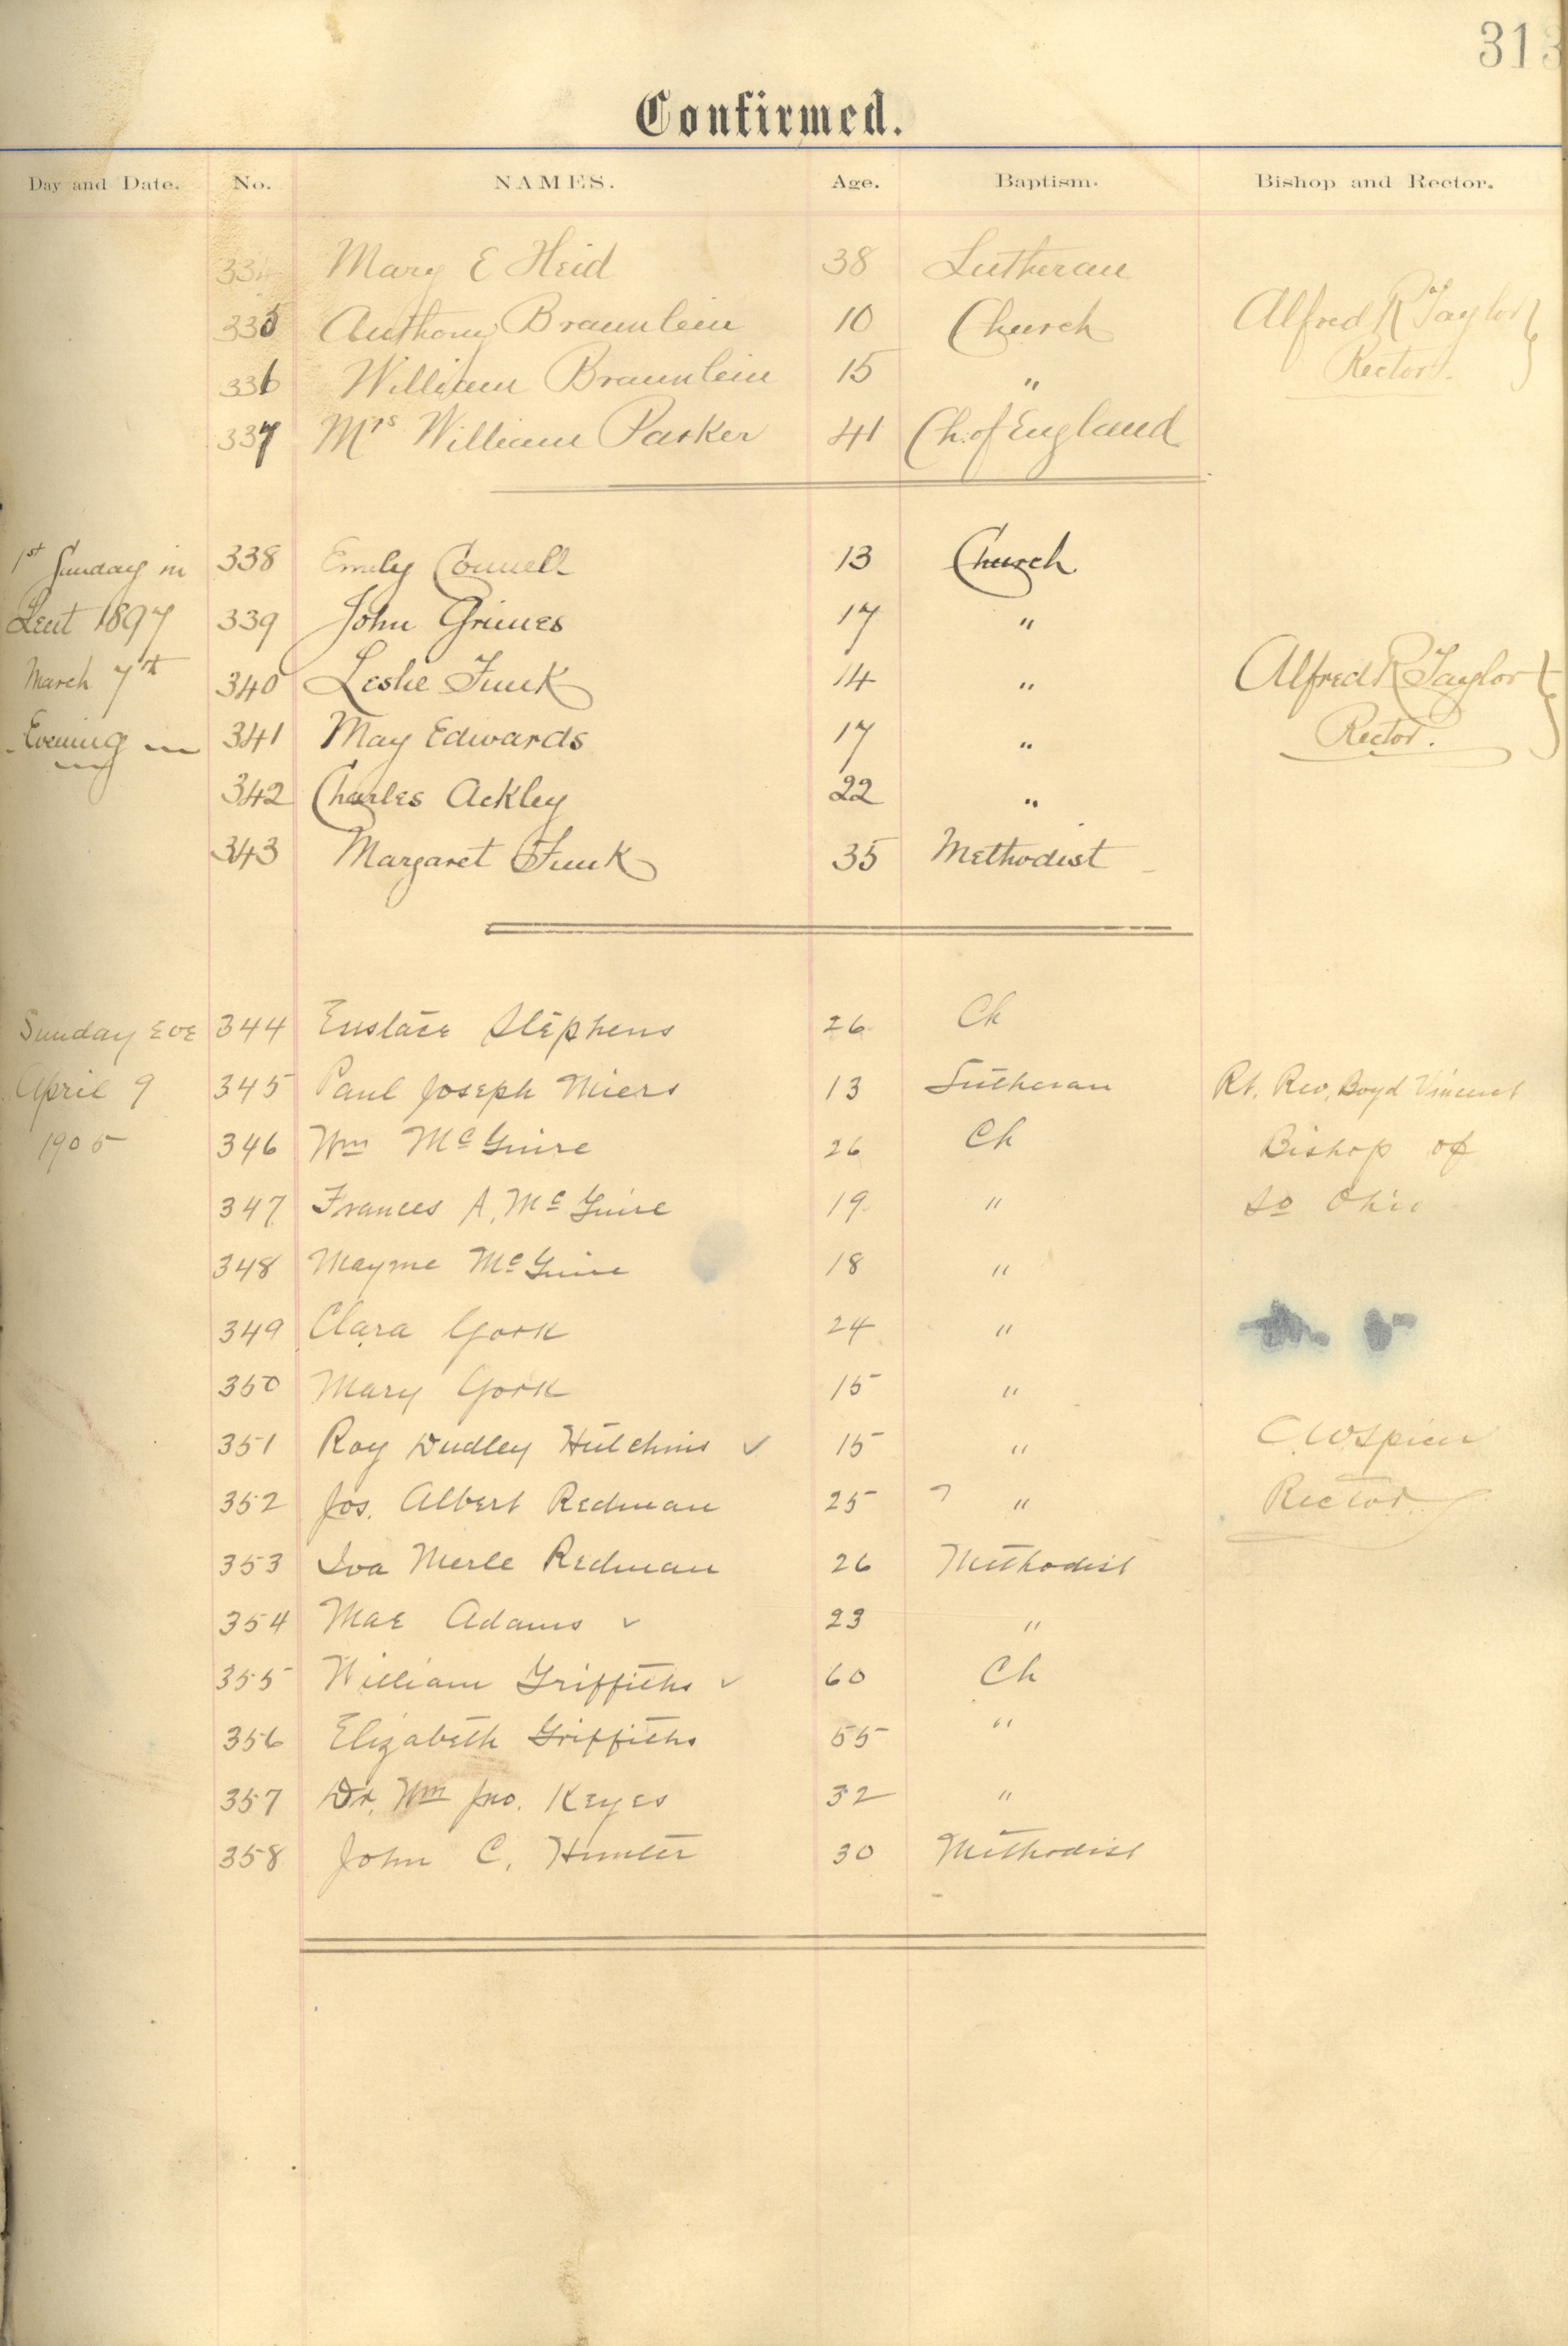 313
Confirmed.
Day and Date. No. NAMES. Age. Baptism. Bishop and Rector.
334 Mary E Heid 38 Lutheran
335 Anthony Braunlein 10 Church Alfred R Taylor
336 William Braunlein 15 " Rector.
337 Mrs William Parker 41 Ch. of England
1st Sunday in 338 Emily Connell 13 Church
Lent 1897 339 John Grimes 17 "
March 7th 340 Leslie Funk 14 " Alfred R Taylor
Evening 341 May Edwards 17 " Rector.
342 Charles Ackley 22 "
343 Margaret Funk 35 Methodist
Sunday Eve 344 Eustace Stephens 26 Ch
April 9 345 Paul Joseph Miers 13 Lutheran Rt. Rev. Boyd Vincent
1905 346 Wm McGuire 26 Ch Bishop of
347 Frances A. McGuire 19 " So Ohio
348 Mayme McGuire 18 "
349 Clara York 24 "
350 Mary York 15 "
351 Roy Dudley Hutchins ✓ 15 "
352 Jos. Albert Redman 25 ? " Rector
353 Iva Merle Redman 26 Methodist
354 Mae Adams ✓ 23 "
355 William Griffiths ✓ 60 Ch
356 Elizabeth Griffiths 55 "
357 Dr. Wm Jno. Keyes 32 "
358 John C. Hunter 30 Methodist